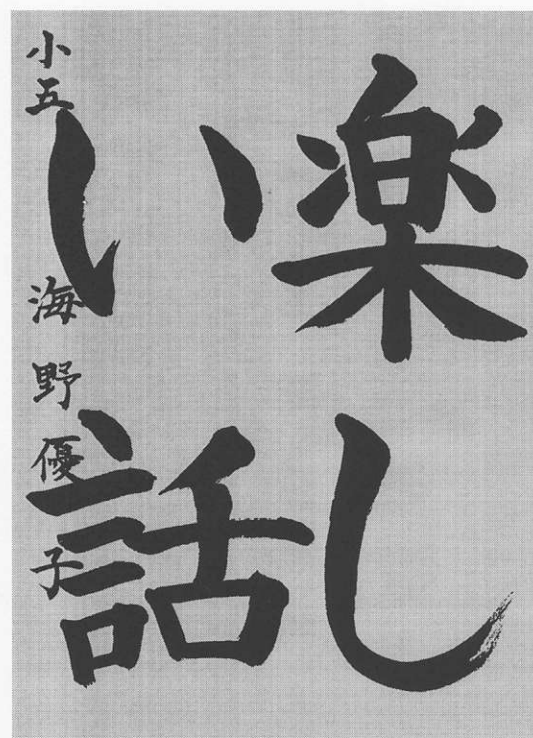 楽し
い話
小五 海野優子